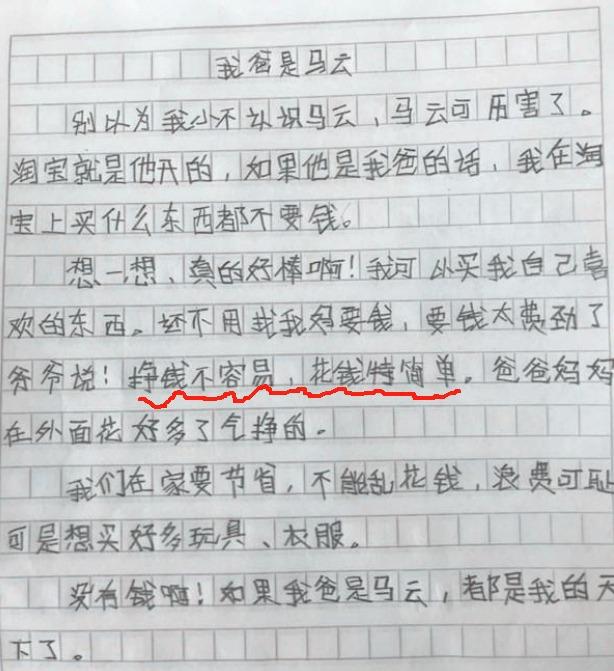 我爸是马云
别以为我小不认识马云,马云可厉害了。
淘宝就是他开的,如果他是我爸的话,我在淘
宝上买什么东西都不要钱。
想一想、真的好棒啊!我可以买我自己喜
欢的东西。还不用找我妈要钱,要钱太费劲了
爷爷说:挣钱不容易,花钱特简单。爸爸妈妈
在外面花好多了气挣的。
我们在家要节省,不能乱花钱,浪费可耻
可是想买好多玩具、衣服。
没有钱啊!如果我爸是马云,都是我的天
下了。